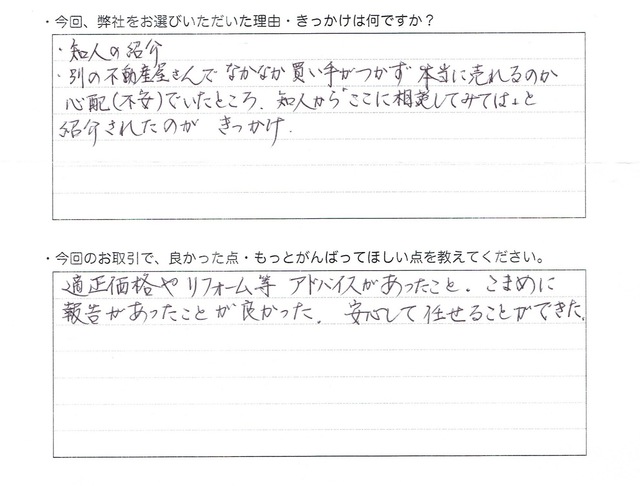 ・今回、弊社をお選びいただいた理由・きっかけは何ですか？
・知人の紹介
・別の不動産屋さんで なかなか買い手がつかず 本当に売れるのか
心配(不安)でいたところ、知人から「ここに相談してみては」と
紹介されたのが きっかけ.
・今回のお取引で、良かった点・もっとがんばってほしい点を教えてください。
適正価格や リフォーム等 アドバイスがあったこと. こまめに
報告があったことが良かった. 安心して任せることができた.